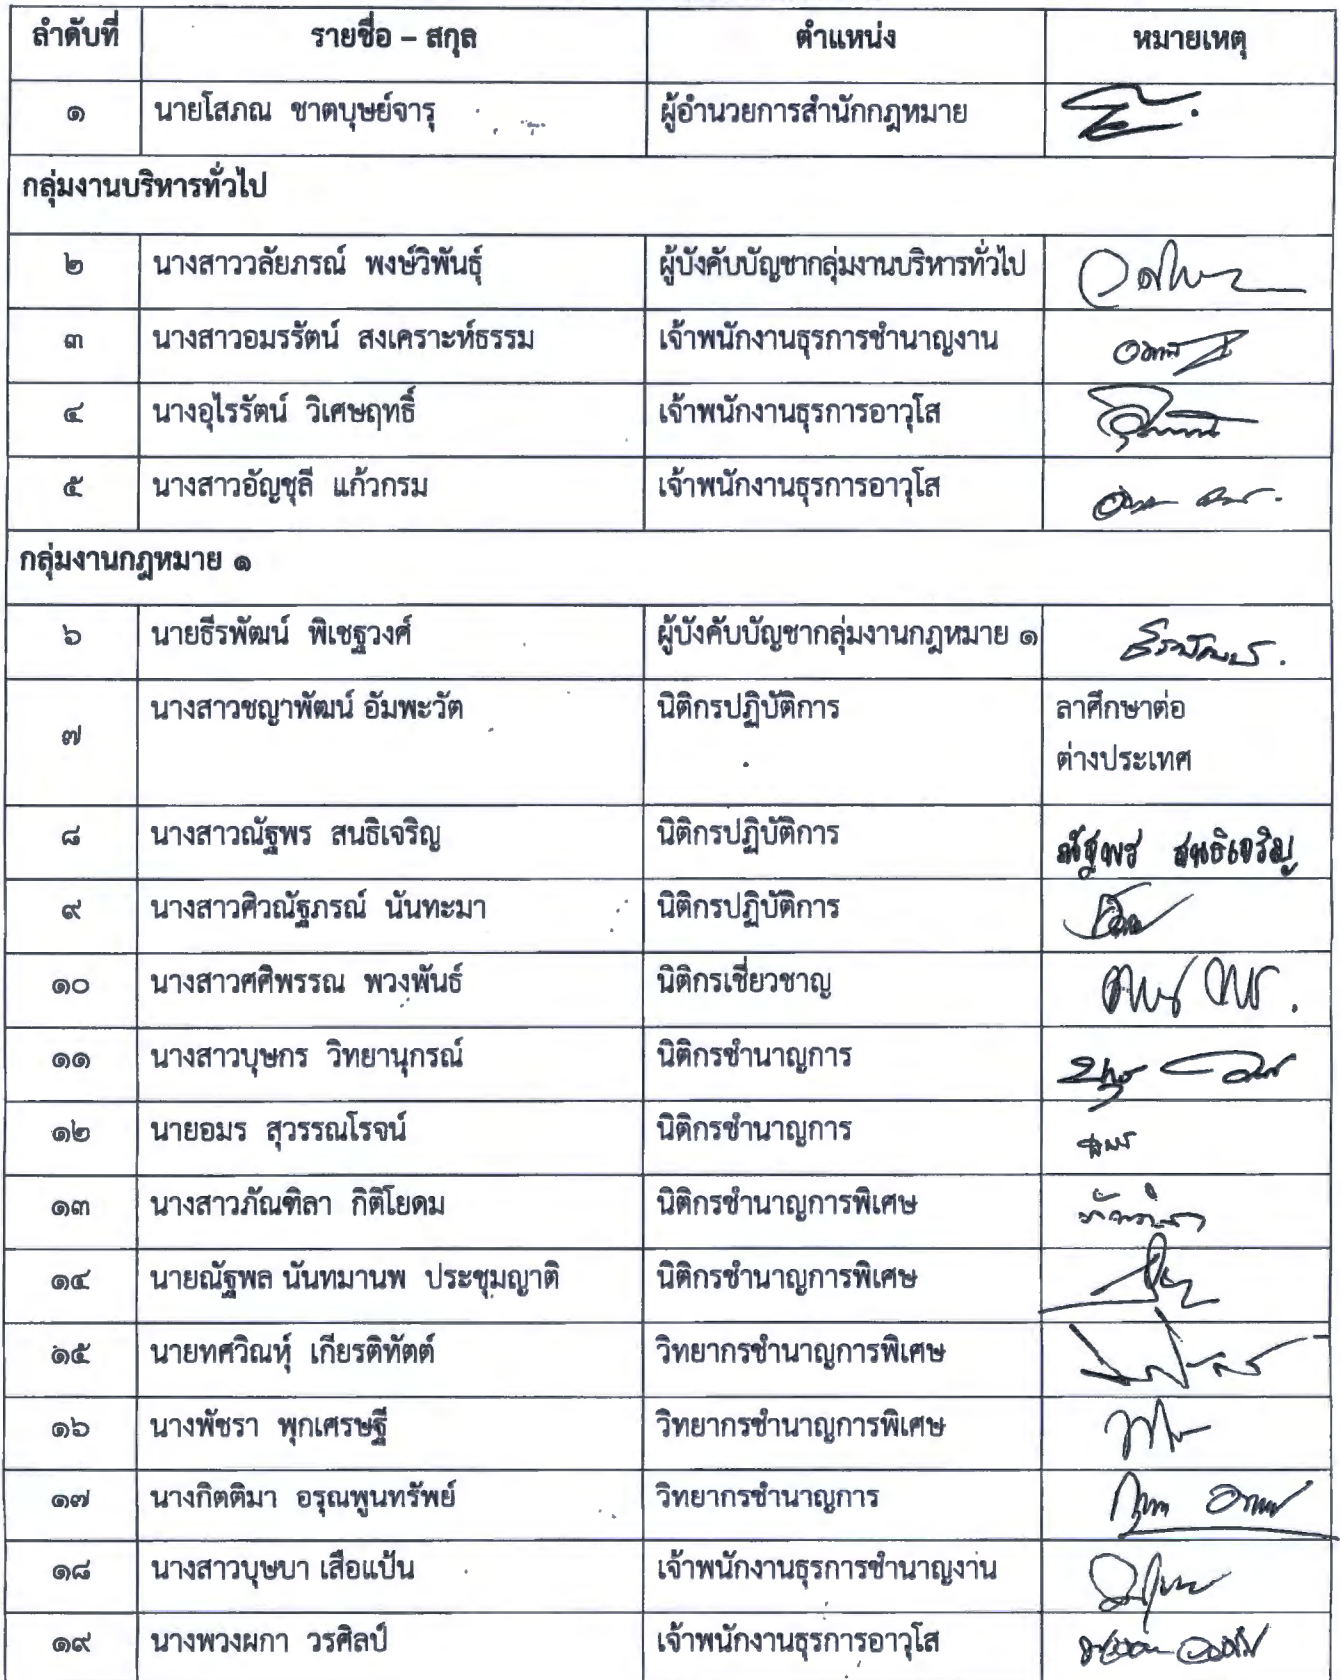 ลำดับที่ รายชื่อ – สกุล ตำแหน่ง หมายเหตุ
๑ นายโสภณ ชาตบุษย์จารุ ผู้อำนวยการสำนักกฎหมาย
กลุ่มงานบริหารทั่วไป
๒ นางสาววลัยภรณ์ พงษ์วิพันธุ์ ผู้บังคับบัญชากลุ่มงานบริหารทั่วไป
๓ นางสาวอมรรัตน์ สงเคราะห์ธรรม เจ้าพนักงานธุรการชำนาญงาน
๔ นางอุไรรัตน์ วิเศษฤทธิ์ เจ้าพนักงานธุรการอาวุโส
๕ นางสาวอัญชุลี แก้วกรม เจ้าพนักงานธุรการอาวุโส
กลุ่มงานกฎหมาย ๑
๖ นายธีรพัฒน์ พิเชฐวงศ์ ผู้บังคับบัญชากลุ่มงานกฎหมาย ๑ ธีรพัฒน์.
๗ นางสาวชญาพัฒน์ อัมพะวัต นิติกรปฏิบัติการ ลาศึกษาต่อ
ต่างประเทศ
๘ นางสาวณัฐพร สนธิเจริญ นิติกรปฏิบัติการ ณัฐพร สนธิเจริญ
๙ นางสาวศิวณัฐภรณ์ นันทะมา นิติกรปฏิบัติการ
๑๐ นางสาวศศิพรรณ พวงพันธ์ นิติกรเชี่ยวชาญ
๑๑ นางสาวบุษกร วิทยานุกรณ์ นิติกรชำนาญการ
๑๒ นายอมร สุวรรณโรจน์ นิติกรชำนาญการ อมร
๑๓ นางสาวภัณฑิลา กิติโยดม นิติกรชำนาญการพิเศษ ภัณฑิลา
๑๔ นายณัฐพล นันทมานพ ประชุมญาติ นิติกรชำนาญการพิเศษ
๑๕ นายทศวิณหุ์ เกียรติทัตต์ วิทยากรชำนาญการพิเศษ
๑๖ นางพัชรา พุกเศรษฐี วิทยากรชำนาญการพิเศษ
๑๗ นางกิตติมา อรุณพูนทรัพย์ วิทยากรชำนาญการ
๑๘ นางสาวบุษบา เสือแป้น เจ้าพนักงานธุรการชำนาญงาน
๑๙ นางพวงผกา วรศิลป์ เจ้าพนักงานธุรการอาวุโส